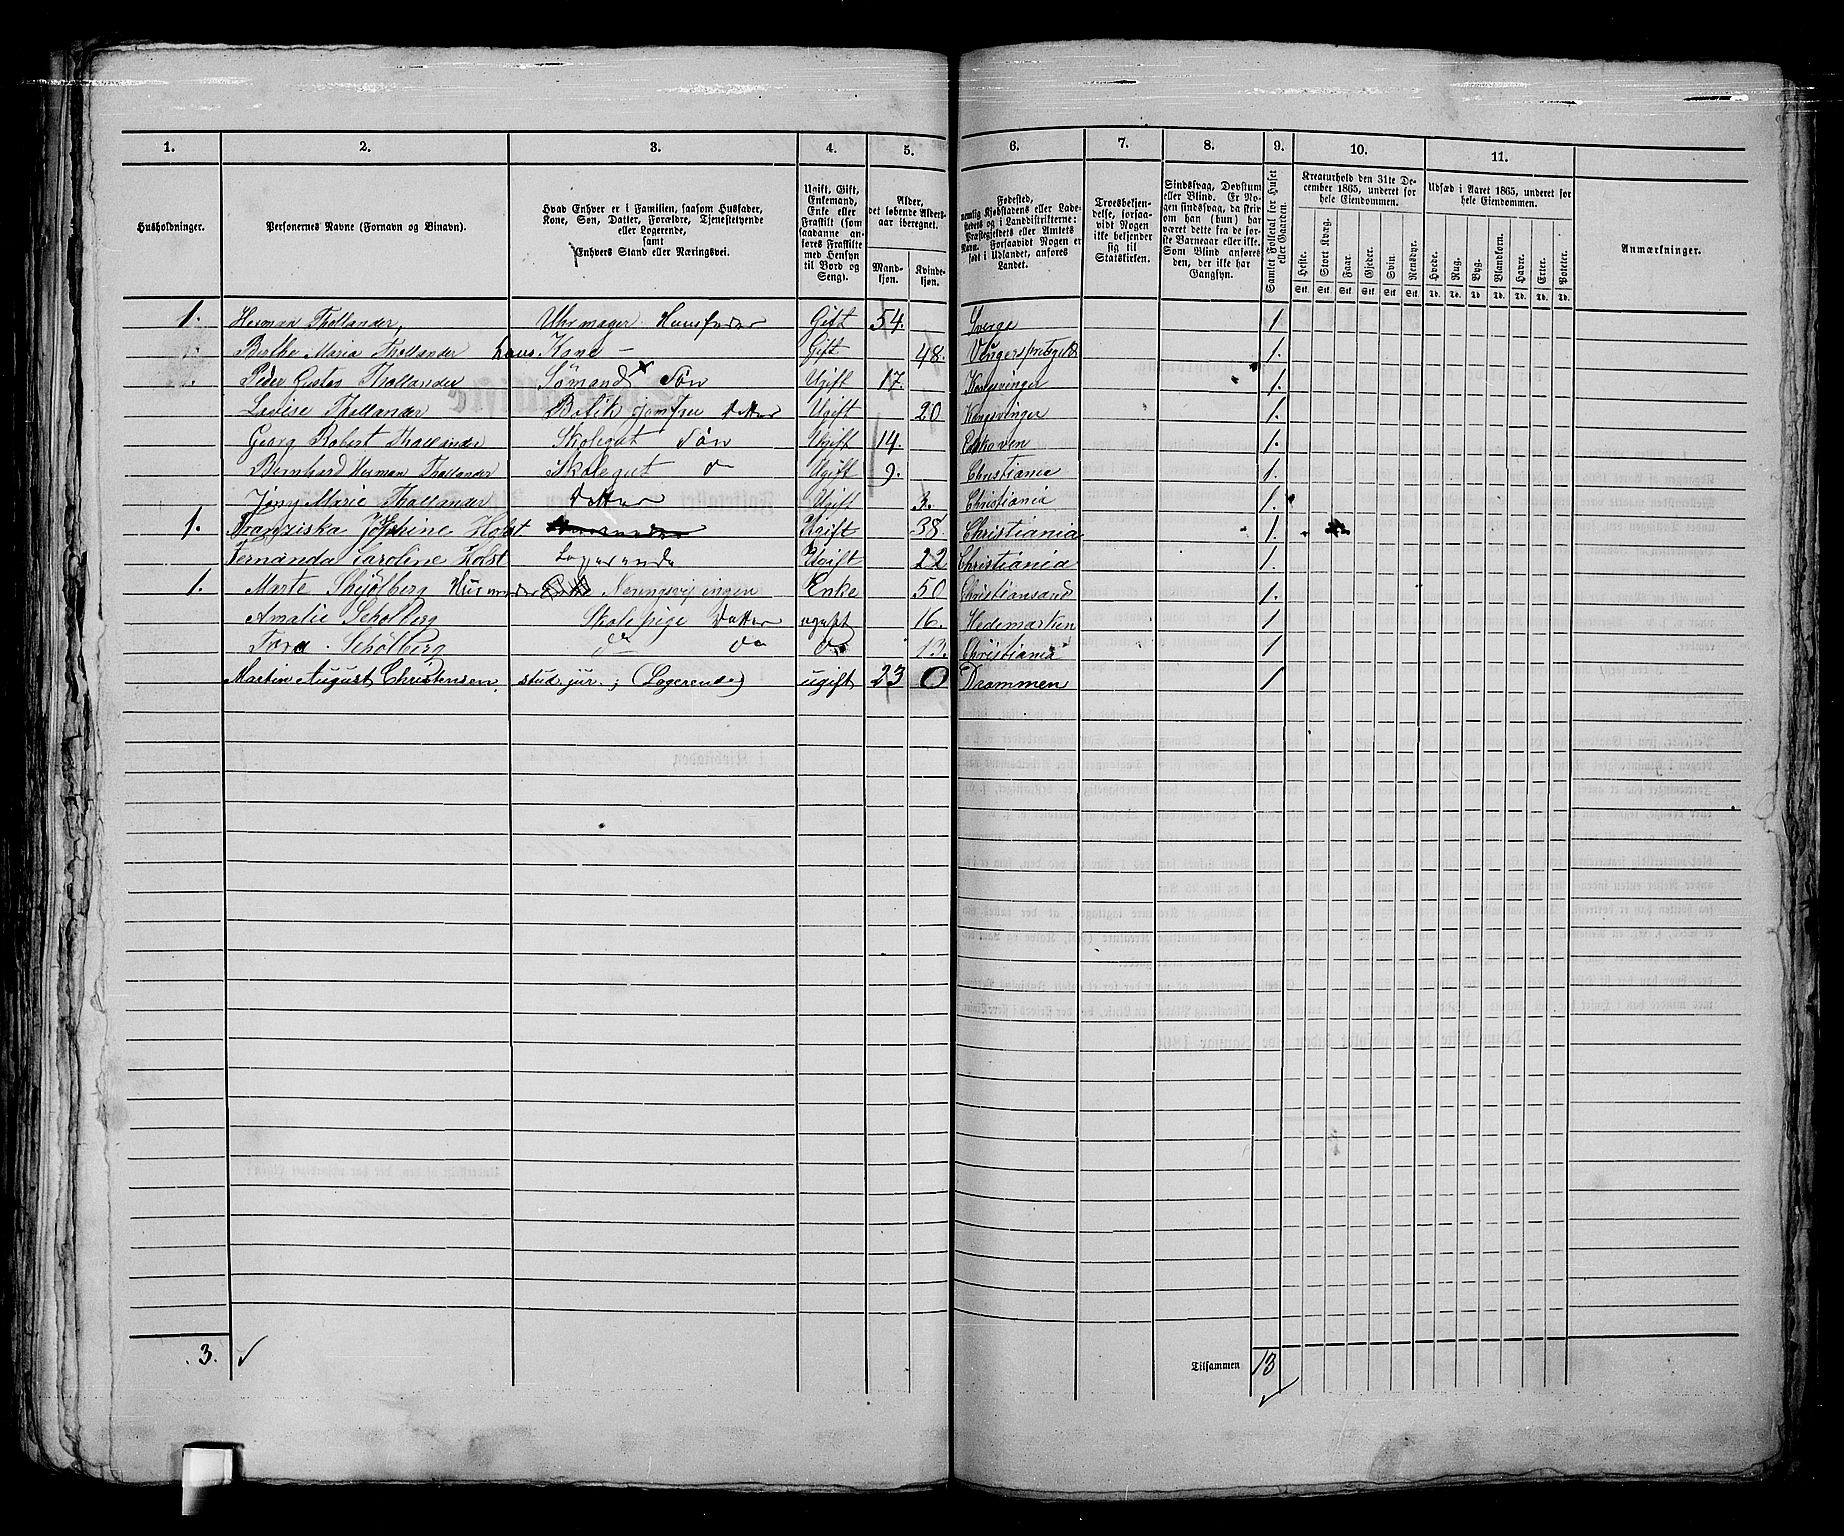 1. 2. 3. 4. 5. 6. 7. 8. 9. 10. 11.
Husholdninger.
Personernes Navne (Fornavn og Binavn).
Hvad Enhver er i Familien, saasom Husfader,
Kone, Søn, Datter, Forældre, Tjenestetyende
eller Logerende,
samt
Enhvers Stand eller Næringsvei.
Ugift, Gift,
Enkemand,
Enke eller
Fraskilt (som
saadanne an-
føres Fraskilte
med Hensyn
til Bord og
Seng).
Alder,
det løbende Alders-
aar iberegnet.
Mand-
kjøn.
Kvinde-
kjøn.
Fødested,
nemlig Kjøbstadens eller Lade-
stedets og i Landdistrikterne:
Præstegjeldets eller Amtets
Navn. Forsaavidt Nogen er
født i Udlandet, anføres
Landet.
Troesbekjen-
delse, forsaa-
vidt Nogen
ikke bekjender
sig til
Statskirken.
Sindssvag, Døvstum
eller Blind. Er No-
gen sindssvag, da skriv
om han (hun) har
været dette fra de før-
ste Barneaar eller ikke.
Som Blind anføres
den, der ikke har
Gangsyn.
Samlet Folketal for Huset
eller Gaarden.
Kreaturhold den 31te De-
cember 1865, underet for
hele Eiendommen.
Heste. Stort Kvæg. Faar. Gjeder. Svin. Rensdyr.
Stk. Stk. Stk. Stk. Stk. Stk.
Udsæd i Aaret 1865, underet for
hele Eiendommen.
Hvede. Rug. Byg. Blandkorn. Havre. Erter. Poteter.
Td. Td. Td. Td. Td. Td. Td.
Anmærkninger.
1. Herman Thollander, Uhrmager Huusfader Gift 54. Sverge 1
Berthe Maria Thollander hans Kone – Gift 48. Vingers 1.
Peder Gustav Thollander Sömand Søn Ugift 17. Kongsvinger 1.
Lovise Thollander Butik jomfru Datter Ugift 20 Kongsvinger 1.
Georg Robert Thollander Skolegut Søn Ugift 14. 1.
Bernhard Herman Thollander Skolegut do Ugift 9. Christiania 1.
Marie Thollander Datter Ugift 3. Christiania 1.
1. Franziska Josephine Holst Ugift 38. Christiania 1.
Fernanda Caroline Holst Logerende Ugift 22 Christiania 1.
1. Marte Skjölberg Næringsvej ingen Enke 50 Christiansand 1.
Amalie Schölberg Skolepige Datter ugift 16. Hedemarken 1
Tora Schölberg do do do 13. Christiania 1
Martin August Christensen. stud jur.; (Logerende) ugift 23 0 Drammen 1
3.
Tilsammen 13